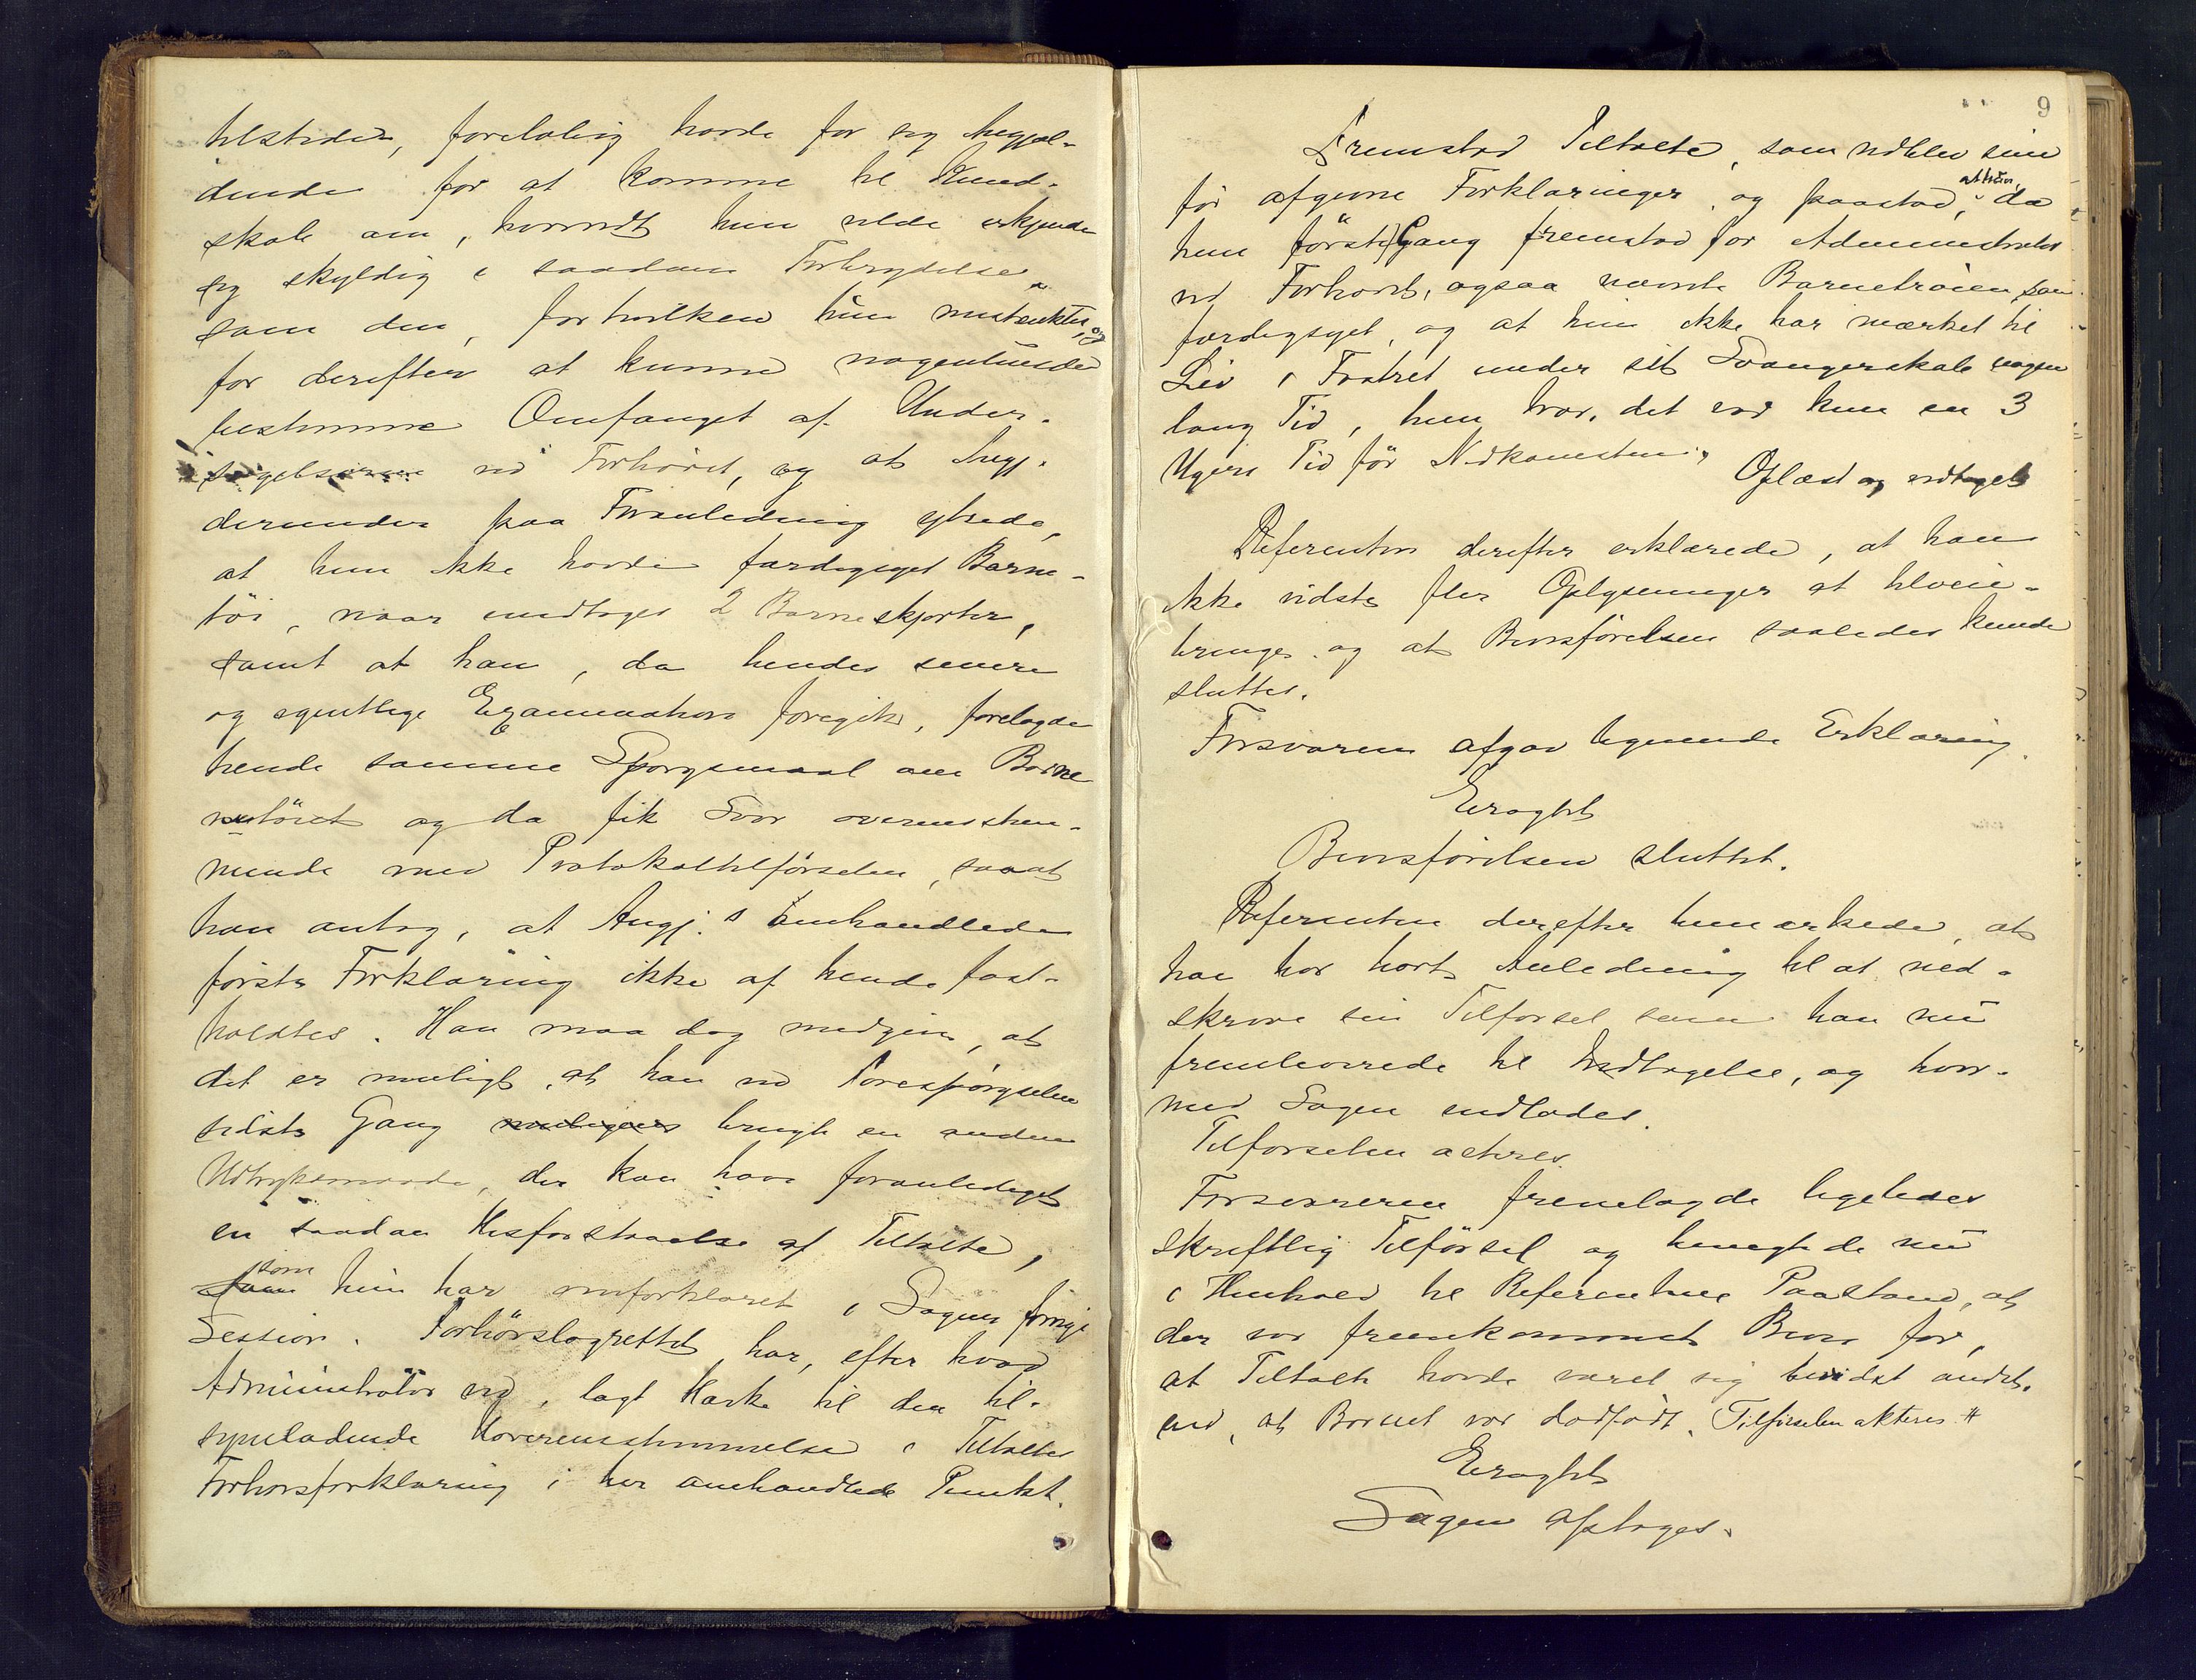 tilstede, foreløbig havde for sig Angjæl-
dende for at komme til Kund-
skab om, hvorvidt hun vilde erkjende
sig skyldig i saadan Forbrydelse
som den, for hvilken hun mistænktes, og
for derefter at kunne nogenlunde
bestemme Omfanget af Under-
søgelserne ved Forhøret, og at Angj.
derunder paa Foranledning ytrede,
at hun ikke havde færdigsyet Barne-
tøi, naar undtages 2 Barneskjorter,
samt at han, da hendes senere
og egentlige Examination foregik, forelagde
hende samme Spørgsmaal om Barne
tøiet og da fik Svar overensstem-
mende med Protokoltilførselen, saaat
han antog, at Angj.s omhandlede
første Forklaring ikke af hende fast-
holdtes. Han maa dog medgive, at
det er muligt, at han ved Forespørgselen
sidste Gang muligens brugte en anden
Udtryksmaade, der kan have foranlediget
en saadan Misforstaaelse af Tiltalte,
som
som hun har omforklaret i Sagens forrige
Session. Forhørslagrettet har, efter hvad
Administrator ved, lagt Mærke til den til-
syneladende Uoverensstemmelse i Tiltaltes
Forhørsforklaring i her omhandlede Punkt.
9
Fremstod Tiltalte, som vedblev sine
før afgivne Forklaringer, og paastod, at hun, da
hun første Gang fremstod for Administrator
ved Forhøret, ogsaa nævnte Barnetrøien som
færdigsyet, og at hun ikke har mærket til
Liv i Fostret under sit Svangerskab nogen
lang Tid, hun tror, det var kun en 3
Ugers Tid før Nedkomsten.
Oplæst og vedtaget
Referenten derefter erklærede, at han
ikke vidste flere Oplysninger at tilveie-
bringe, og at Bevisførelsen saaledes kunde
sluttes.
Forsvareren afgav lignende Erklæring.
Eragtet
Bevisførelsen sluttet.
Referenten derefter bemærkede, at
han har havt Anledning til at ned-
skrive sin Tilførsel som han nu
fremleverede til Indtagelse, og hvor-
med Sagen indlades.
Tilførselen acteres.
Forsvareren fremlagde ligeledes
skriftlig Tilførsel og benegtede nu
i Henhold til Referentens Paastand, at
der var fremkommet Bevis for,
at Tiltalte havde været sig bevidst andet,
end, at Barnet var dødfødt. Tilførselen akteres #
Eragtet
Sagen optages.